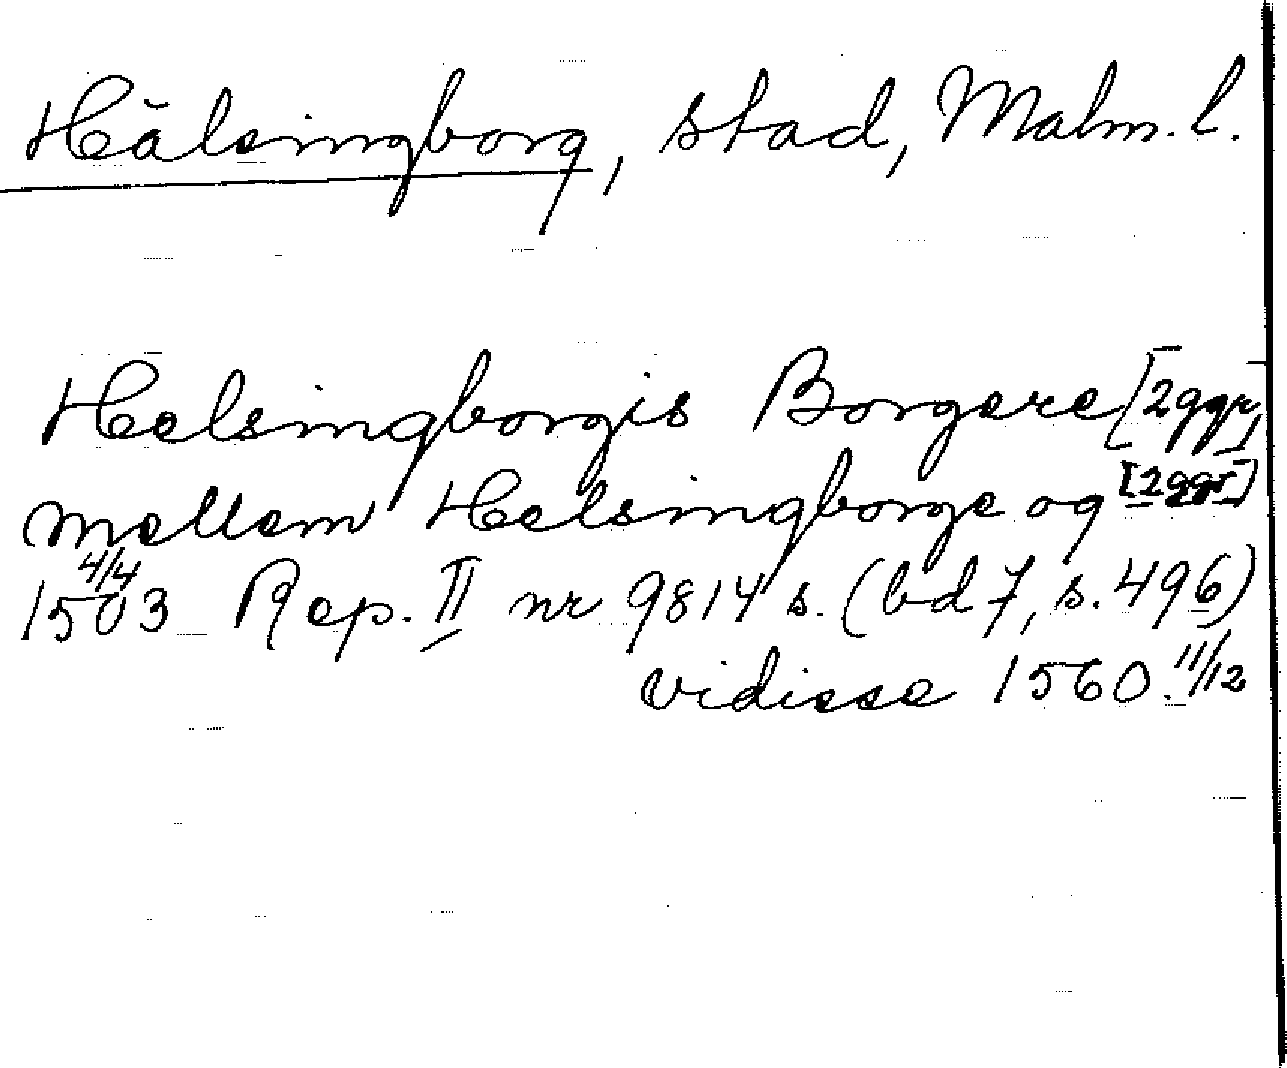 Hälsingborg, stad, Malm. l.
Helsingborgis Borgere [2ggr]
mellem Helsingborge og [2ggr]
4/4
1503 Rep. II nr 9814 s. (bd 7, s. 496)
vidisse 1560. 11/12